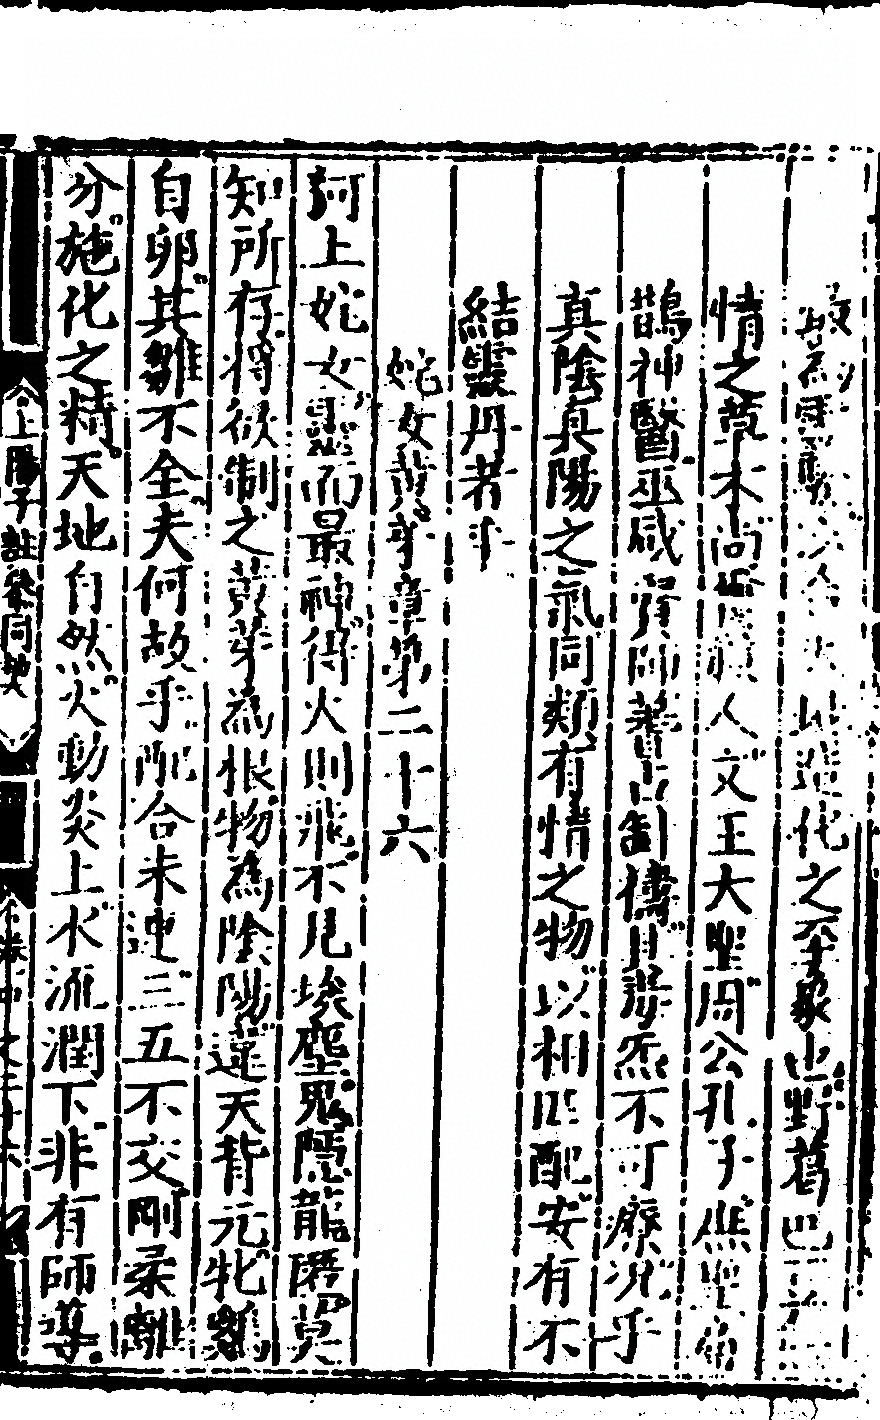 造化之至象也野葛巴豆
情之草木尚 損人文王大聖周公孔子 聖扁
鵲神醫巫咸賢師 炁不可療況乎
真陰真陽之氣同類有情之物以相匹配安有不
結靈丹者乎
姹女黃芽章第二十六
河上姹女靈而最神得火則飛不見埃塵鬼隱龍匿莫
知所存將欲制之黃芽為根物為陰陽違天背元牝雞
自卵其雛不全夫何故乎配合未連三五不交剛柔離
分施化之精天地自然火動炎上水流潤下非有師導
上陽子註參同契 卷中之二十六